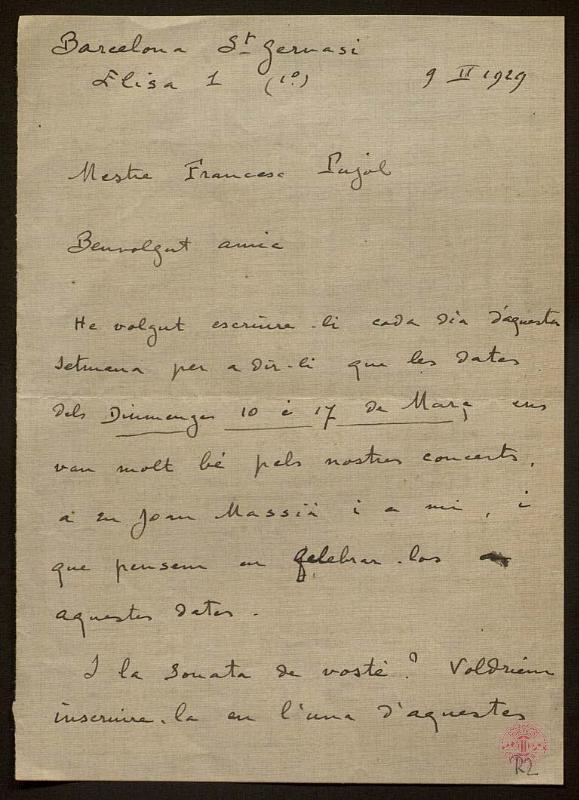 Barcelona St Gervasi
Elisa 1 (1º) 9 II 1929
Mestre Francesc Pujol
Benvolgut amic
He volgut escriure-li cada dia d'aquesta
setmana per a dir-li que les dates
dels Diumenges 10 i 17 de Març ens
van molt bé pels nostres concerts,
a en Joan Massià i a mi, i
que pensem en celebrar-los
aquestes dates.
I la Sonata de vostè? Voldriem
inscriure-la en l'una d'aquestes
R2